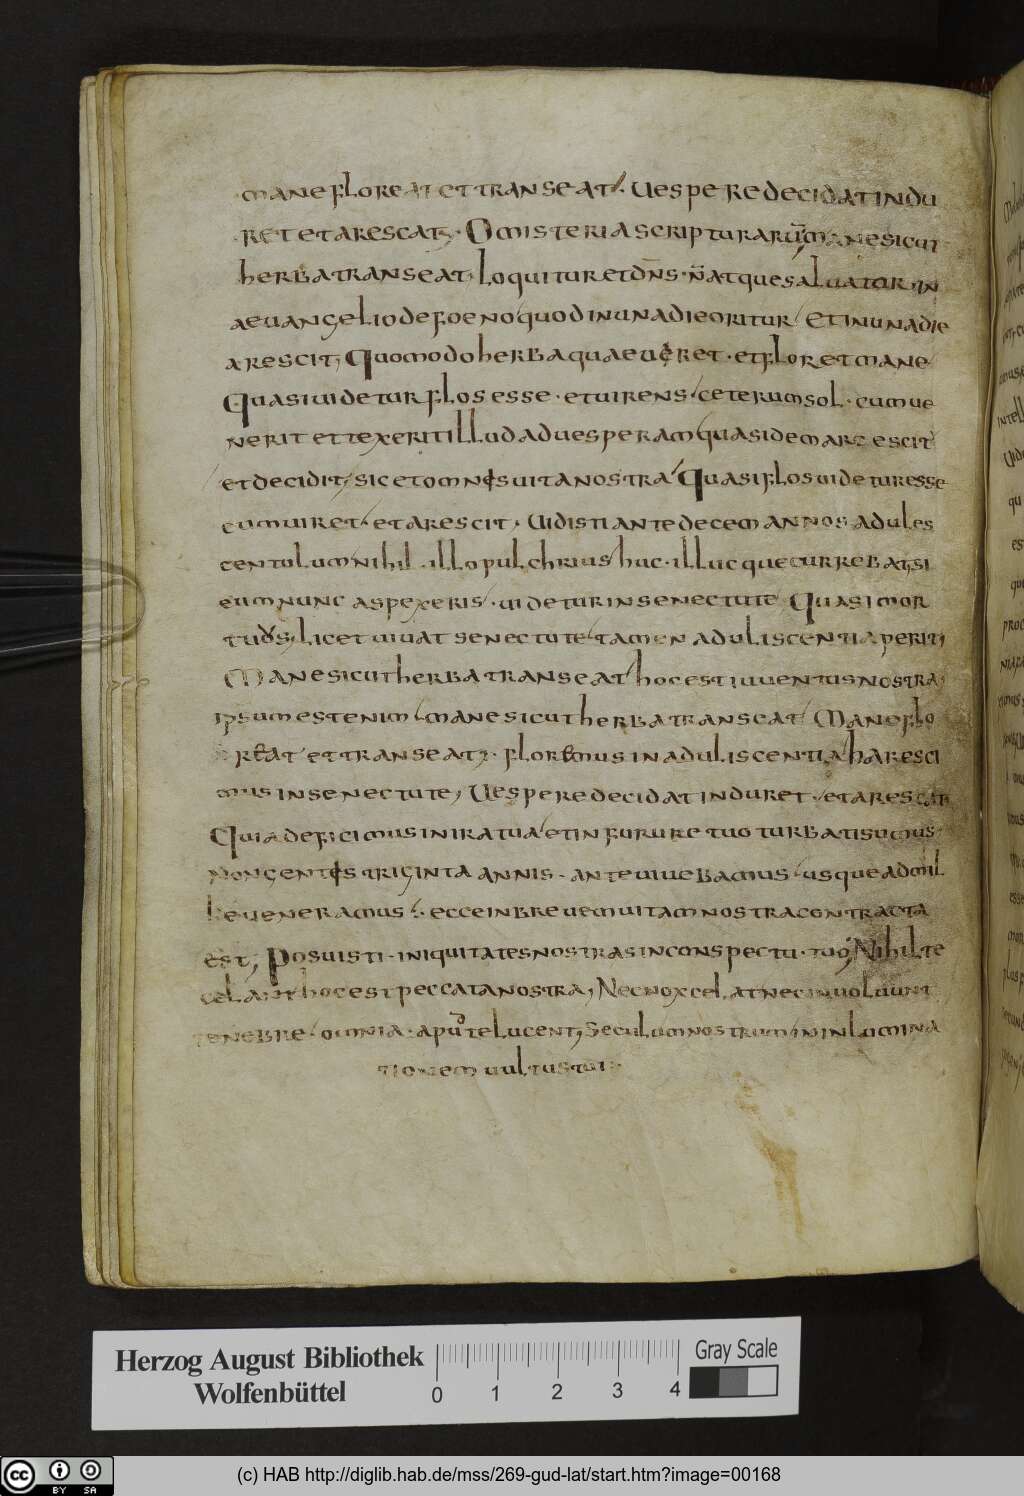 mane floreat et transeat. uespere decidat indu
ret et arescat; O misteria scripturarū mane sicut
herba transeat. loquitur et dn̄s. n̄ atque saluator, in
aeuangelio de foeno quod in una die oritur et in una die
arescit, quomodo herba quae uiret. et floret mane
quasi uidetur flos esse. et uirens ceterum sol. cum ue
nerit et texerit illud ad uesperam quasi demarcescit
et decidit, sic et omnes uita nostra quasi flos uidetur esse
cum uiret et arescit. Uidisti ante decem annos adules
centulum nihil illo pulchrius huc. illucque currebat, si
eum nunc aspexeris. uidetur in senectute quasi mor
tuus, licet uiuat senectute tamen aduliscentia periit
Mane sicut herba transeat hoc est iuuentus nostra
ipsum est enim mane sicut herba transeat Mane flo
reat et transeat; floremus in aduliscentia haresci
mus in senectute, Uespere decidat induret. et arescat
Quia deficimus in ira tua et in furure tuo turbati sumus.
nongentes triginta annis. ante uiuebamus usque ad mil
le ueneramus: ecce in breuem uitam nostra contracta
est, Posuisti. iniquitates nostras in conspectu. tuo, Nihil te
celant hoc est peccata nostra, Nec nox celat nec inuoluunt
tenebre. omnia. apud te lucent, Seculum nostrum in inlumina
tionem uultus tui
Herzog August Bibliothek
Wolfenbüttel
0 1 2 3 4
Gray Scale
cc BY SA
(c) HAB http://diglib.hab.de/mss/269-gud-lat/start.htm?image=00168